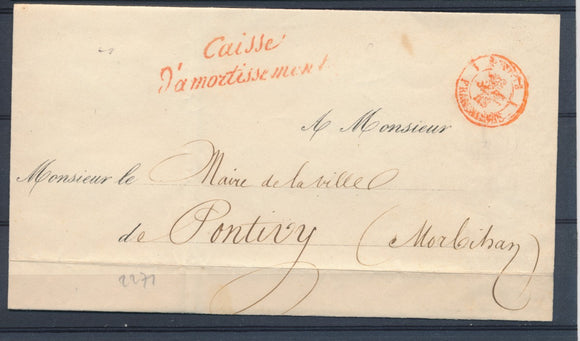 Caisse
D'amortissement
A Monsieur
Monsieur le Maire de la ville
de Pontivy (Morbihan)
2271